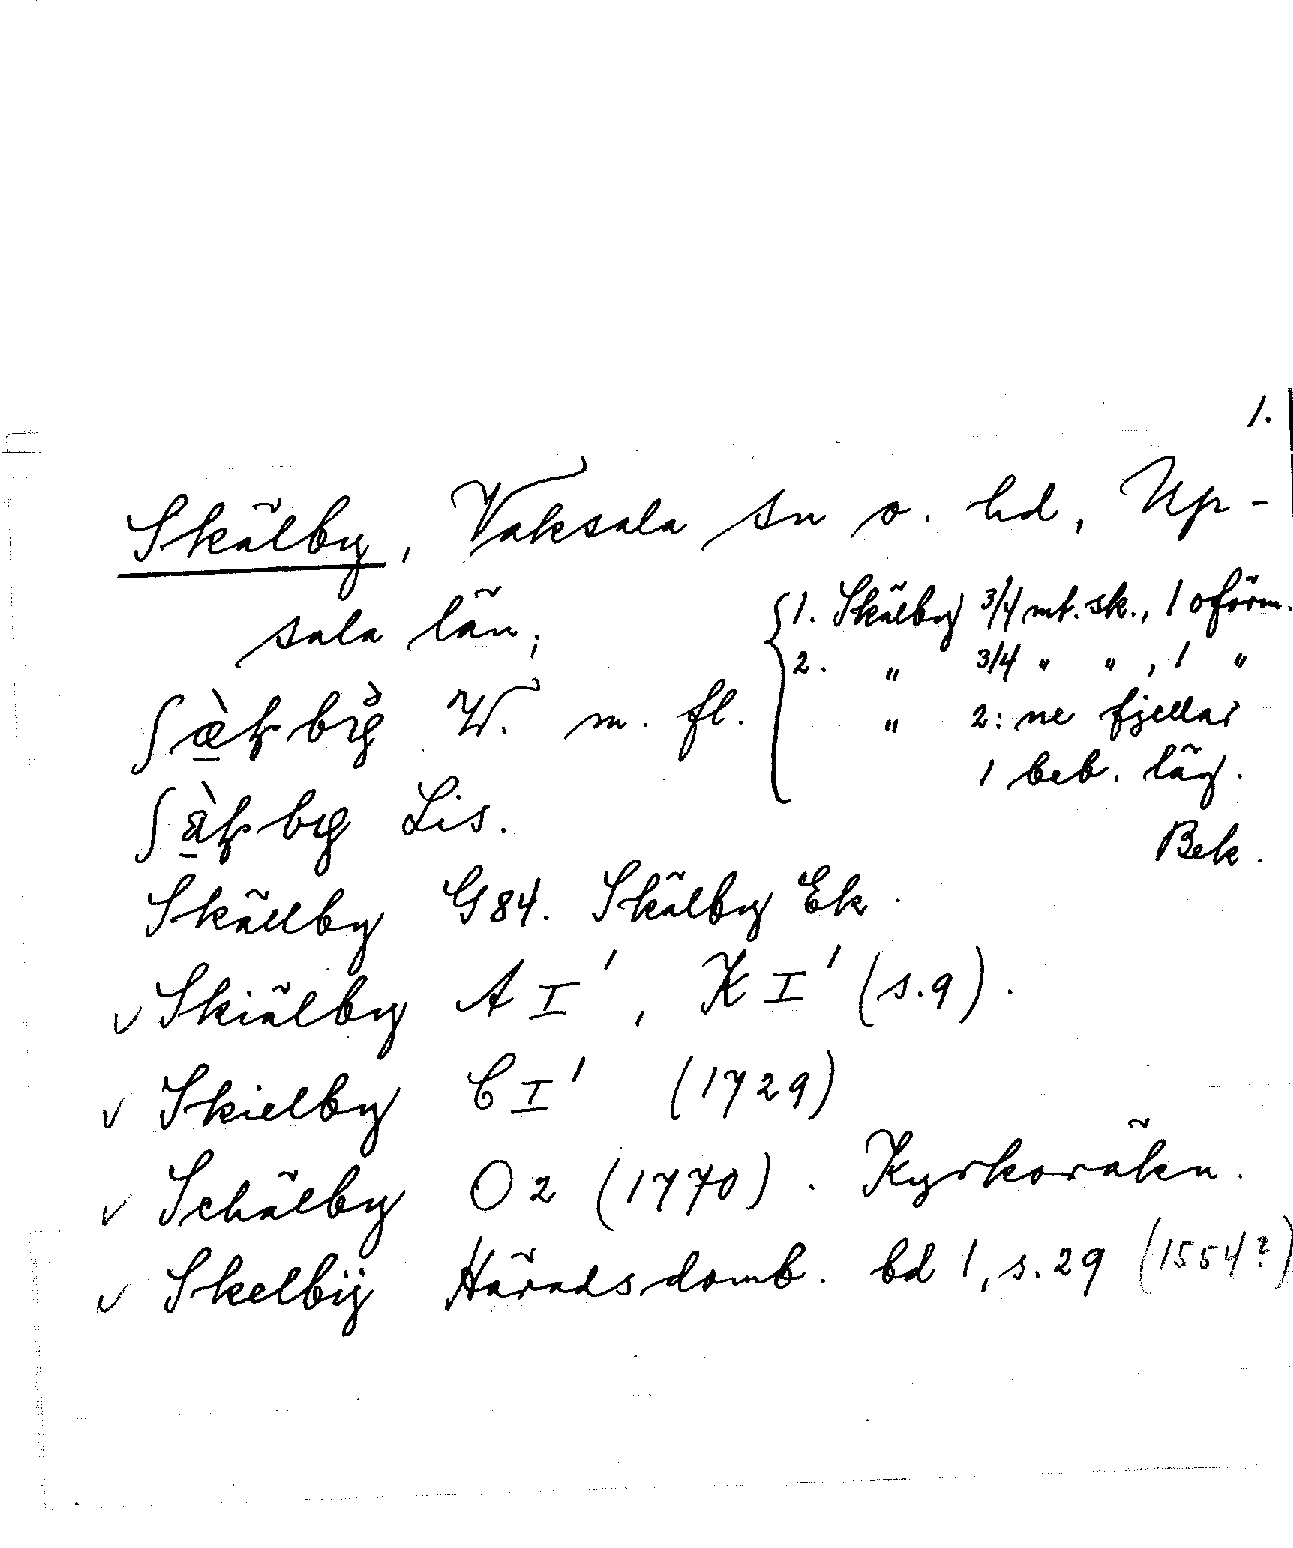 1.
Skälby, Vaksala sn o. hd, Up-
sala län;
W. m. fl.
Lis.
{1. Skälby 3/4 mt. sk., 1 oförm.
2. „ 3/4 „ „, 1 „
„ 2:ne fjellar
1 beb. läg.
Bek.
Skällby G84. Skälby Ek.
✓ Skiälby A I', K I' (s.9).
✓ Skielby C I' (1729)
✓ Schälby O2 (1770). Kyrkoräkn.
✓ Skelbÿ Häradsdomb. bd 1, s.29 (1554?)